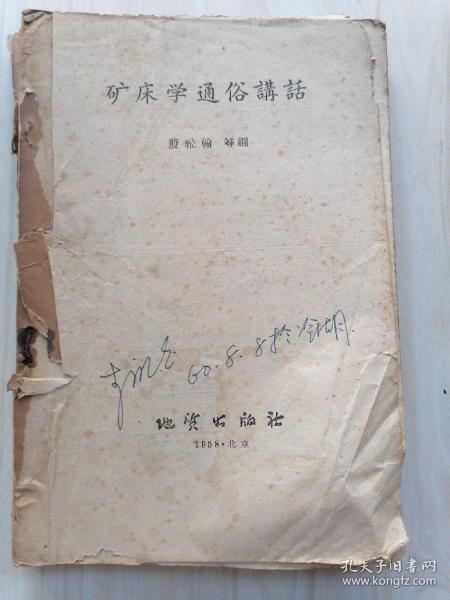 矿床学通俗講話
殷維翰 等編
60.8.8於冷湖.
地质出版社
1958·北京
孔夫子旧书网
www.kongfz.com